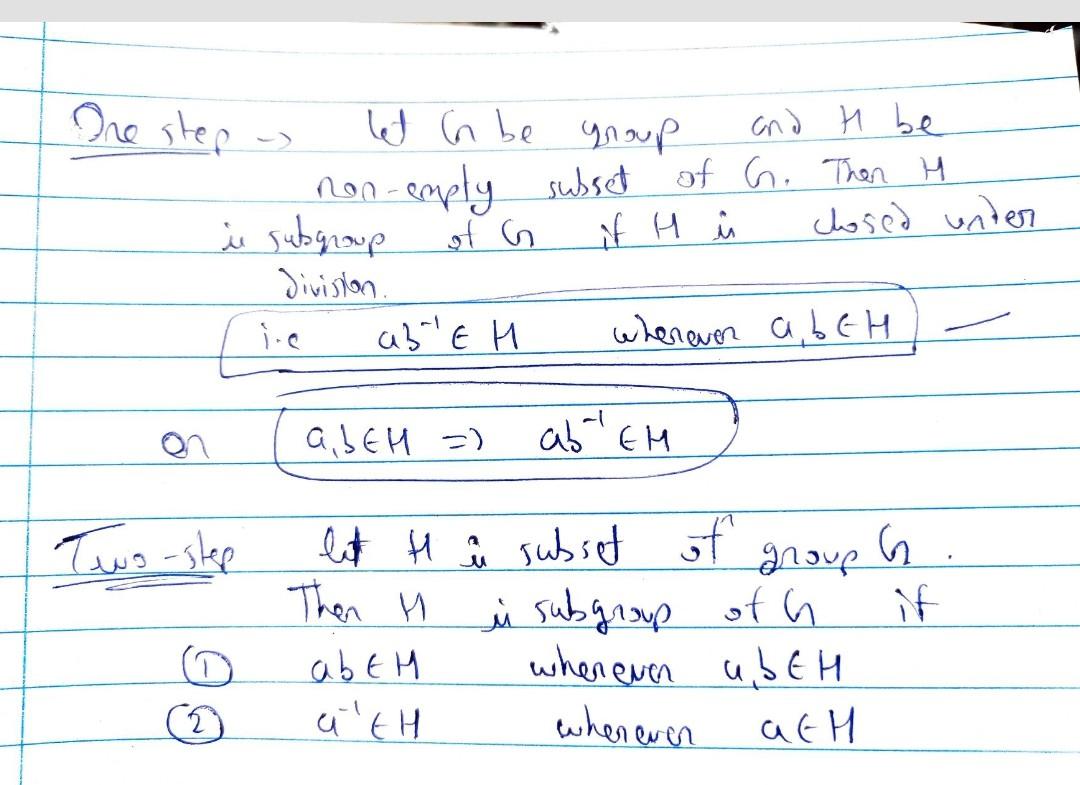 One step → let G be group and H be
non-empty subset of G. Then H
is subgroup of G if H is closed under
division.
i.e ab⁻¹ ∈ H whenever a,b ∈ H
or a,b ∈ H => ab⁻¹ ∈ H
Two-step let H is subset of group G.
Then H is subgroup of G if
① ab ∈ H whenever a,b ∈ H
② a⁻¹ ∈ H whenever a ∈ H